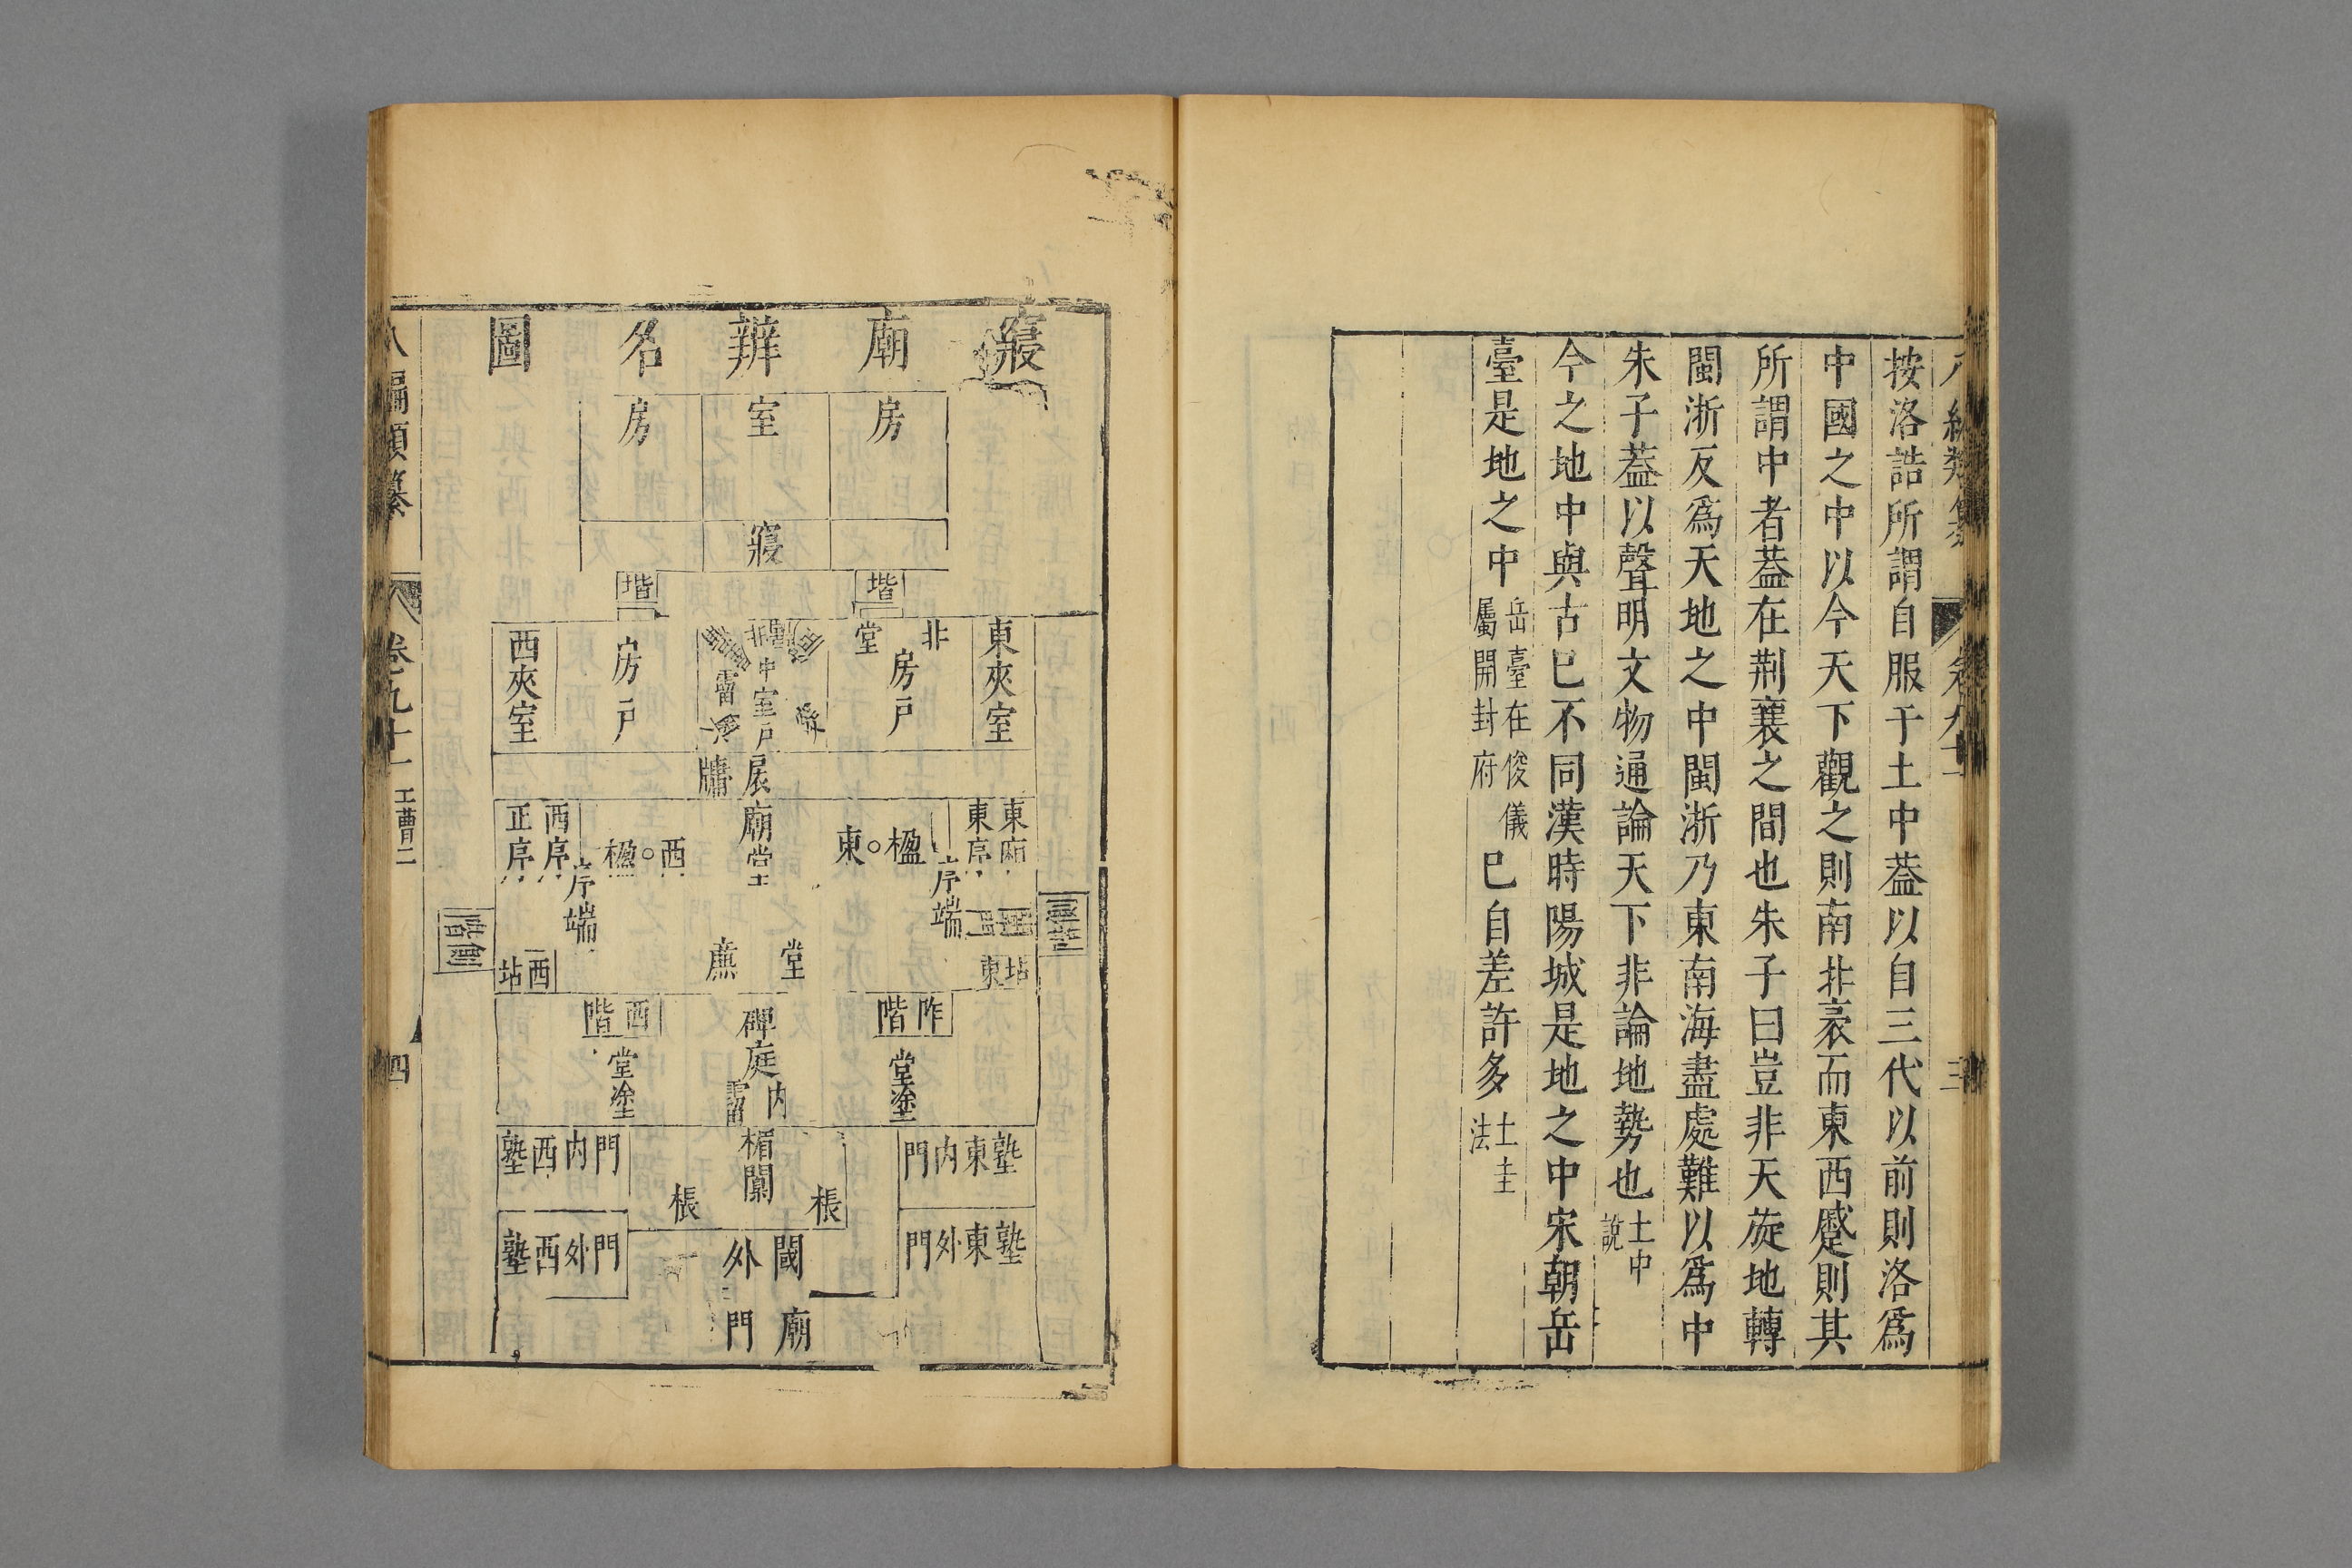 按洛誥所謂自服于土中葢以自三代以前則洛爲
中國之中以今天下觀之則南北袤而東西蹙則其
所謂中者葢在荆襄之間也朱子曰豈非天旋地轉
閩浙反爲天地之中閩浙乃東南海盡處難以爲中
朱子葢以聲明文物通論天下非論地勢也土中說
今之地中與古已不同漢時陽城是地之中宋朝岳
臺是地之中岳臺在俊儀屬開封府已自差許多土圭法
三
寢廟辨名圖
房 室 房
寢
階 階
東夾室
房戶
北堂
中室戶
房戶
西夾室
扆
牖
東廂
東序
楹○東
廟堂
西○楹
西序
序端
序端
東坫
堂廉
西坫
側階
阼階
西階
碑
庭
內霤
堂塗
堂塗
塾東內門
楣
闑
棖
棖
門內西塾
塾東外門
閾外
門外西塾
廟門
八編類纂 卷九十一 工曹二 四